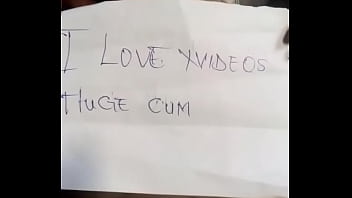 I LOVE XVIDEOS
HUGE CUM